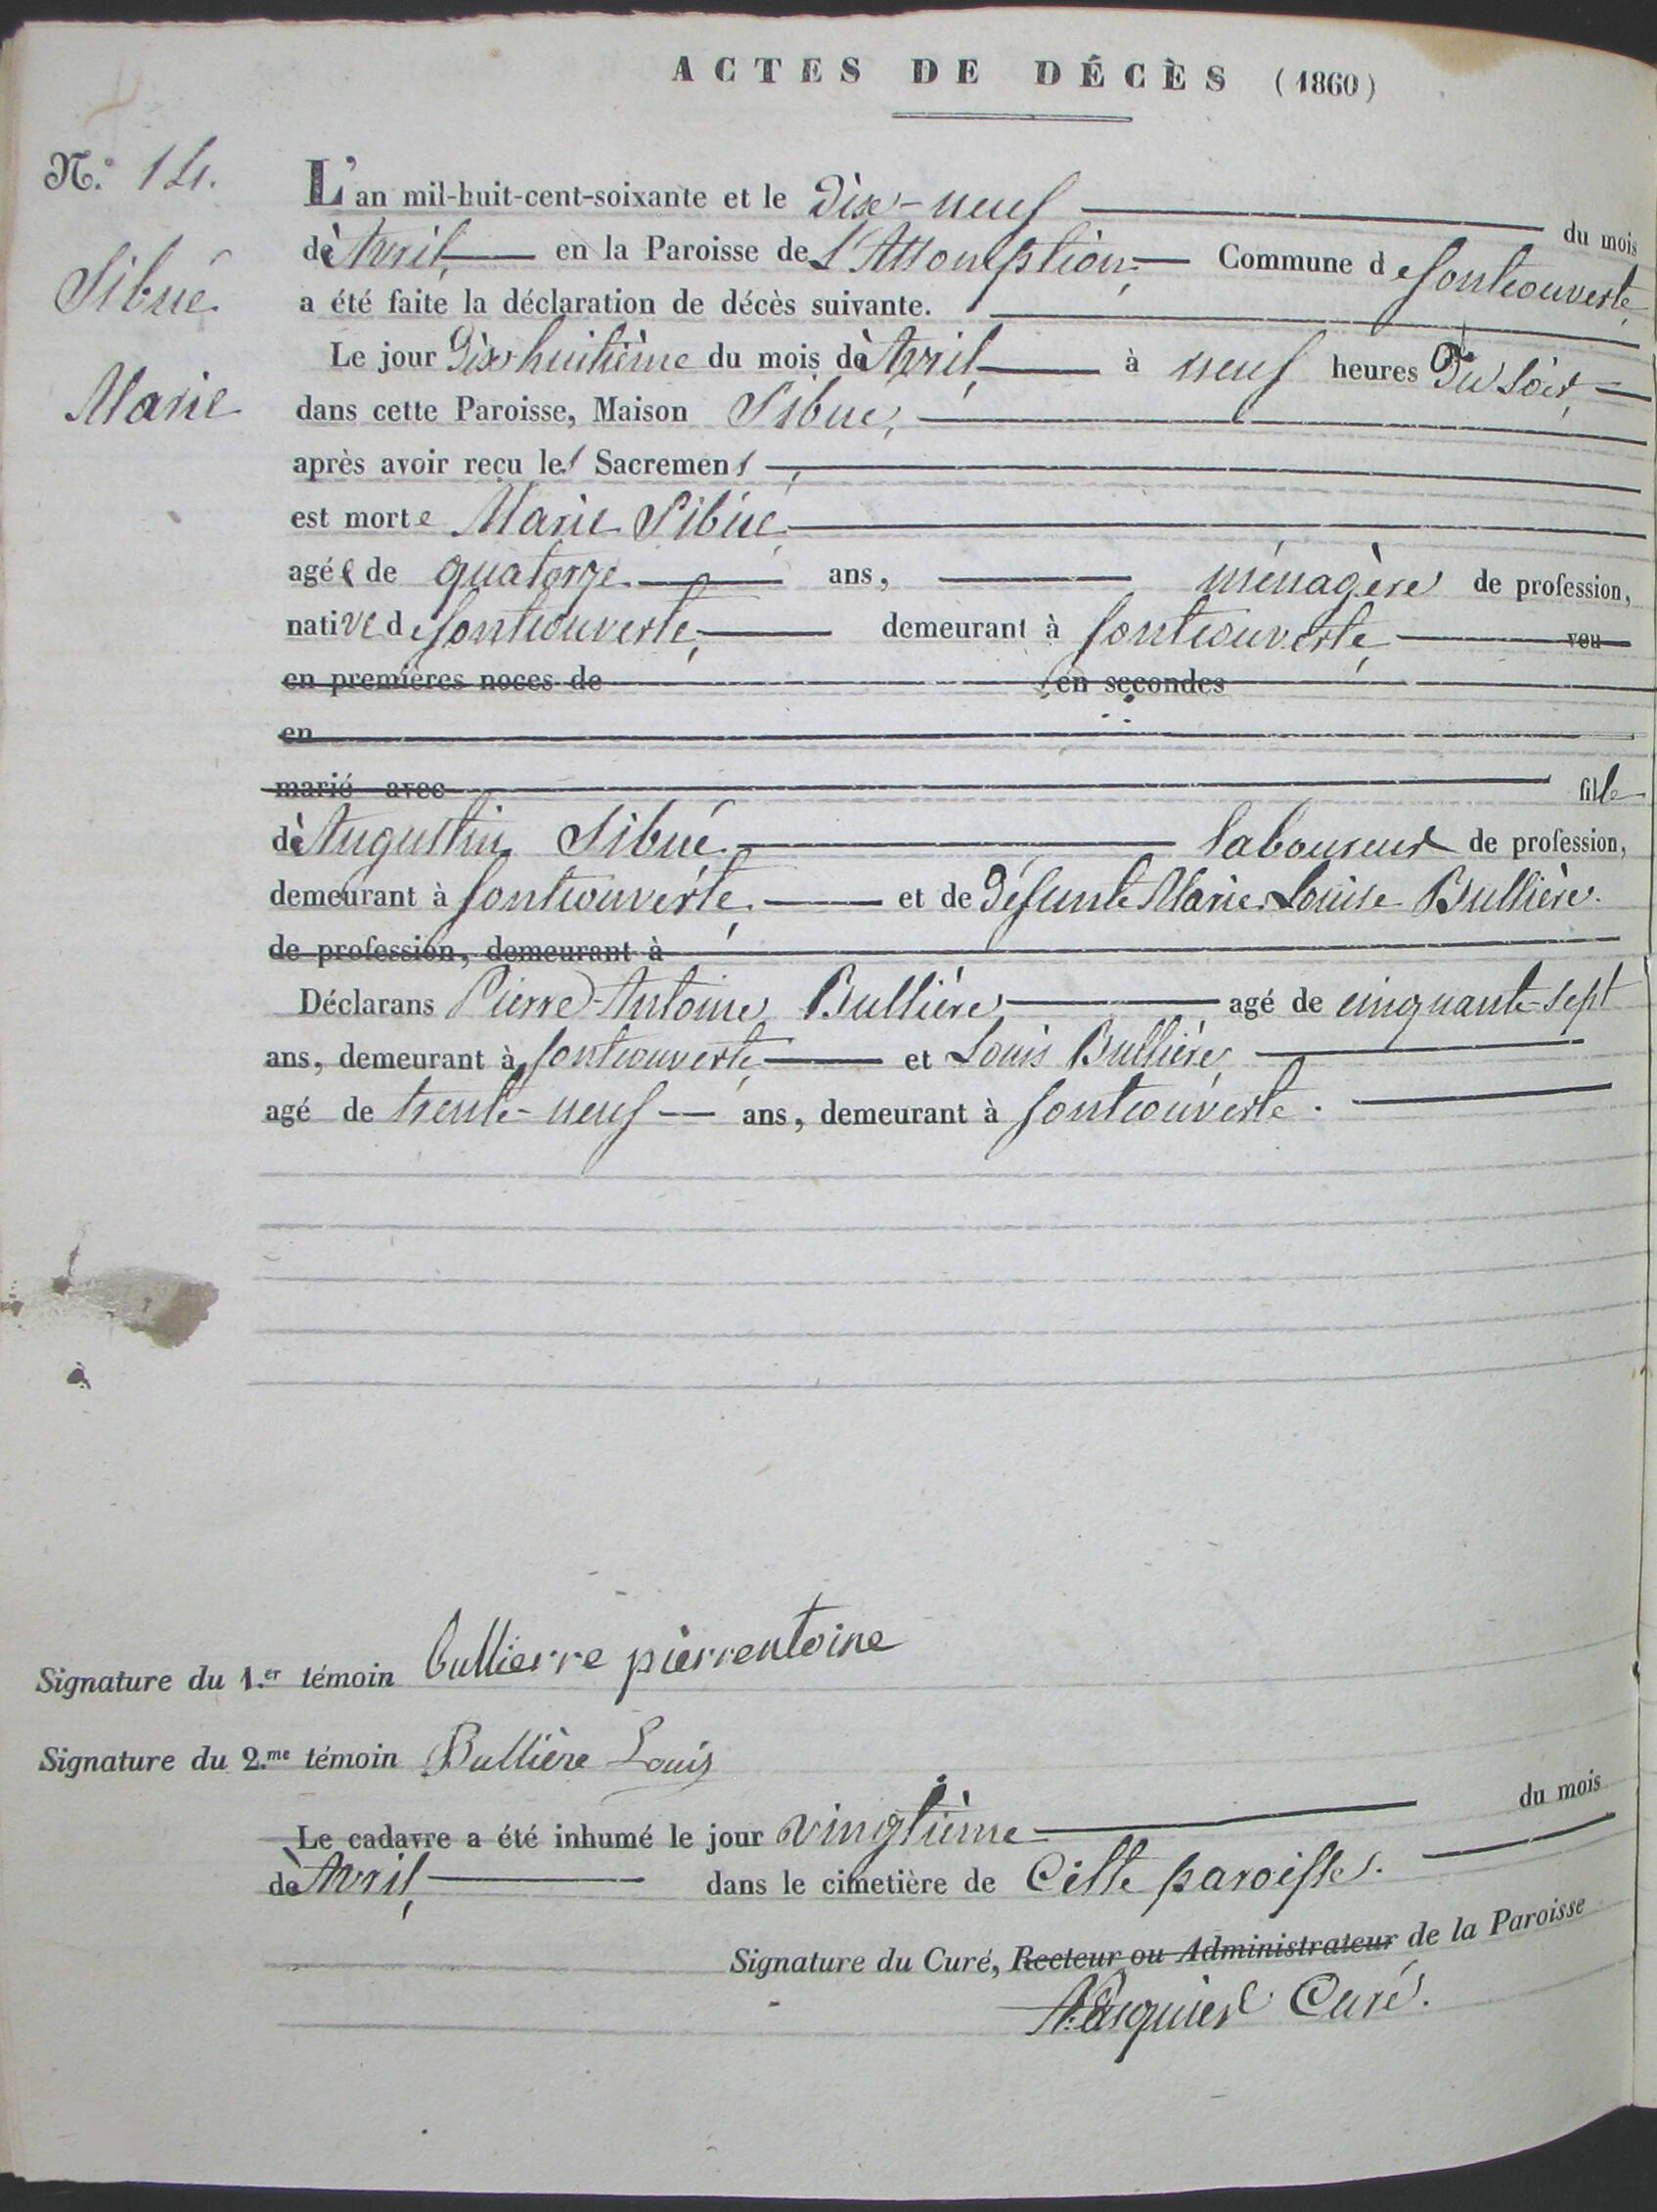 ACTES DE DÉCÈS (1860)
N.° 14.
Sibué
Marie
L'an mil-huit-cent-soixante et le Dix-neuf du mois
d'Avril, en la Paroisse de L'Assomption, Commune de fontcouverte
a été faite la déclaration de décès suivante.
Le jour Dix huitième du mois d'Avril, à neuf heures Du soir,
dans cette Paroisse, Maison Sibué,
après avoir reçu les Sacremens,
est morte Marie Sibué
agée de quatorze ans, ménagère de profession,
native de fontcouverte, demeurant à fontcouverte, veu
en premières noces de en secondes
en
marié avec fille
d'Augustin Sibué laboureur de profession,
demeurant à fontcouverte, et de Défunte Marie Louise Bullière.
de profession, demeurant à
Déclarans Pierre-Antoine Bullière agé de cinquante-sept
ans, demeurant à fontcouverte et Louis Bullière,
agé de trente-neuf ans, demeurant à fontcouverte.
Signature du 1.er témoin bullierre pierrentoine
Signature du 2.me témoin Bullière Louis
Le cadavre a été inhumé le jour vingtième du mois
d'Avril, dans le cimetière de Cette paroisse.
Signature du Curé, Recteur ou Administrateur de la Paroisse
Curé.